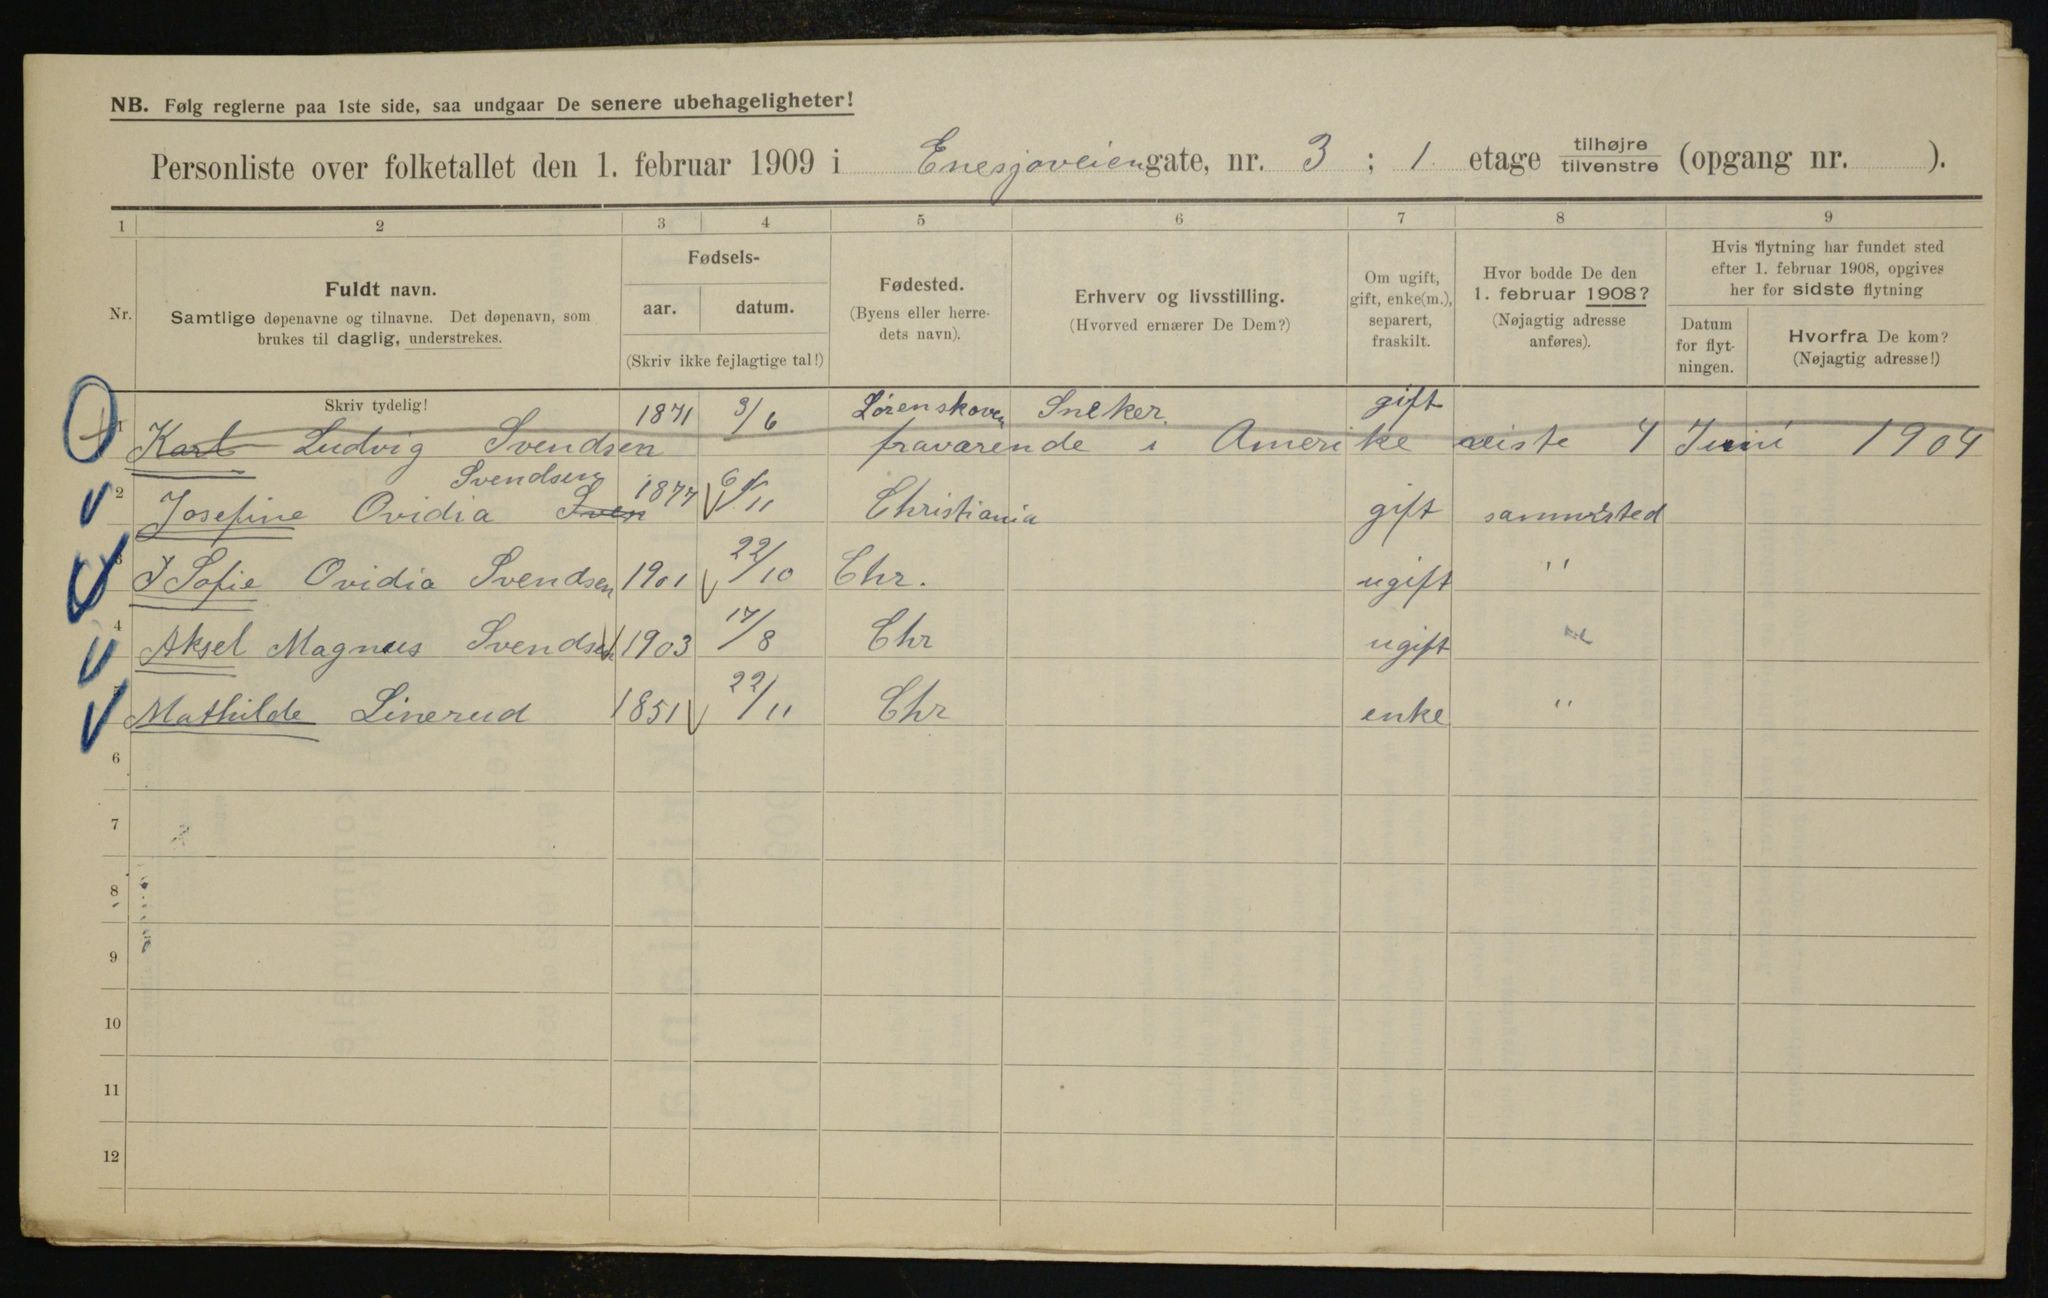 NB. Følg reglerne paa 1ste side, saa undgaar De senere ubehageligheter!
Personliste over folketallet den 1. februar 1909 i Enesjoveien gate, nr. 3 ; 1. etage tilhøjre/tilvenstre (opgang nr. ).
1 2 3 4 5 6 7 8 9
Nr.
Fuldt navn.
Samtlige døpenavne og tilnavne. Det døpenavn, som
brukes til daglig, understrekes.
Skriv tydelig!
Fødsels-
aar. datum.
(Skriv ikke fejlagtige tal!)
Fødested.
(Byens eller herre-
dets navn).
Erhverv og livsstilling.
(Hvorved ernærer De Dem?)
Om ugift,
gift, enke(m.),
separert,
fraskilt.
Hvor bodde De den
1. februar 1908?
(Nøjagtig adresse
anføres).
Hvis flytning har fundet sted
efter 1. februar 1908, opgives
her for sidste flytning
Datum
for flyt-
ningen.
Hvorfra De kom?
(Nøjagtig adresse!)
1 Karl Ludvig Svendsen 1871 3/6 Lørenskoven Sneker gift
fraværende i Amerike reiste 4 Juni 1904
Svendsen
2 Josefine Ovidia Sven 1877 6/11 Christiania gift sammested
3 J Sofie Ovidia Svendsen 1901 22/10 Chr. ugift "
4 Aksel Magnus Svendsen 1903 17/8 Chr ugift "
5 Mathilde Linerud 1851 22/11 Chr enke "
6
7
8
9
10
11
12